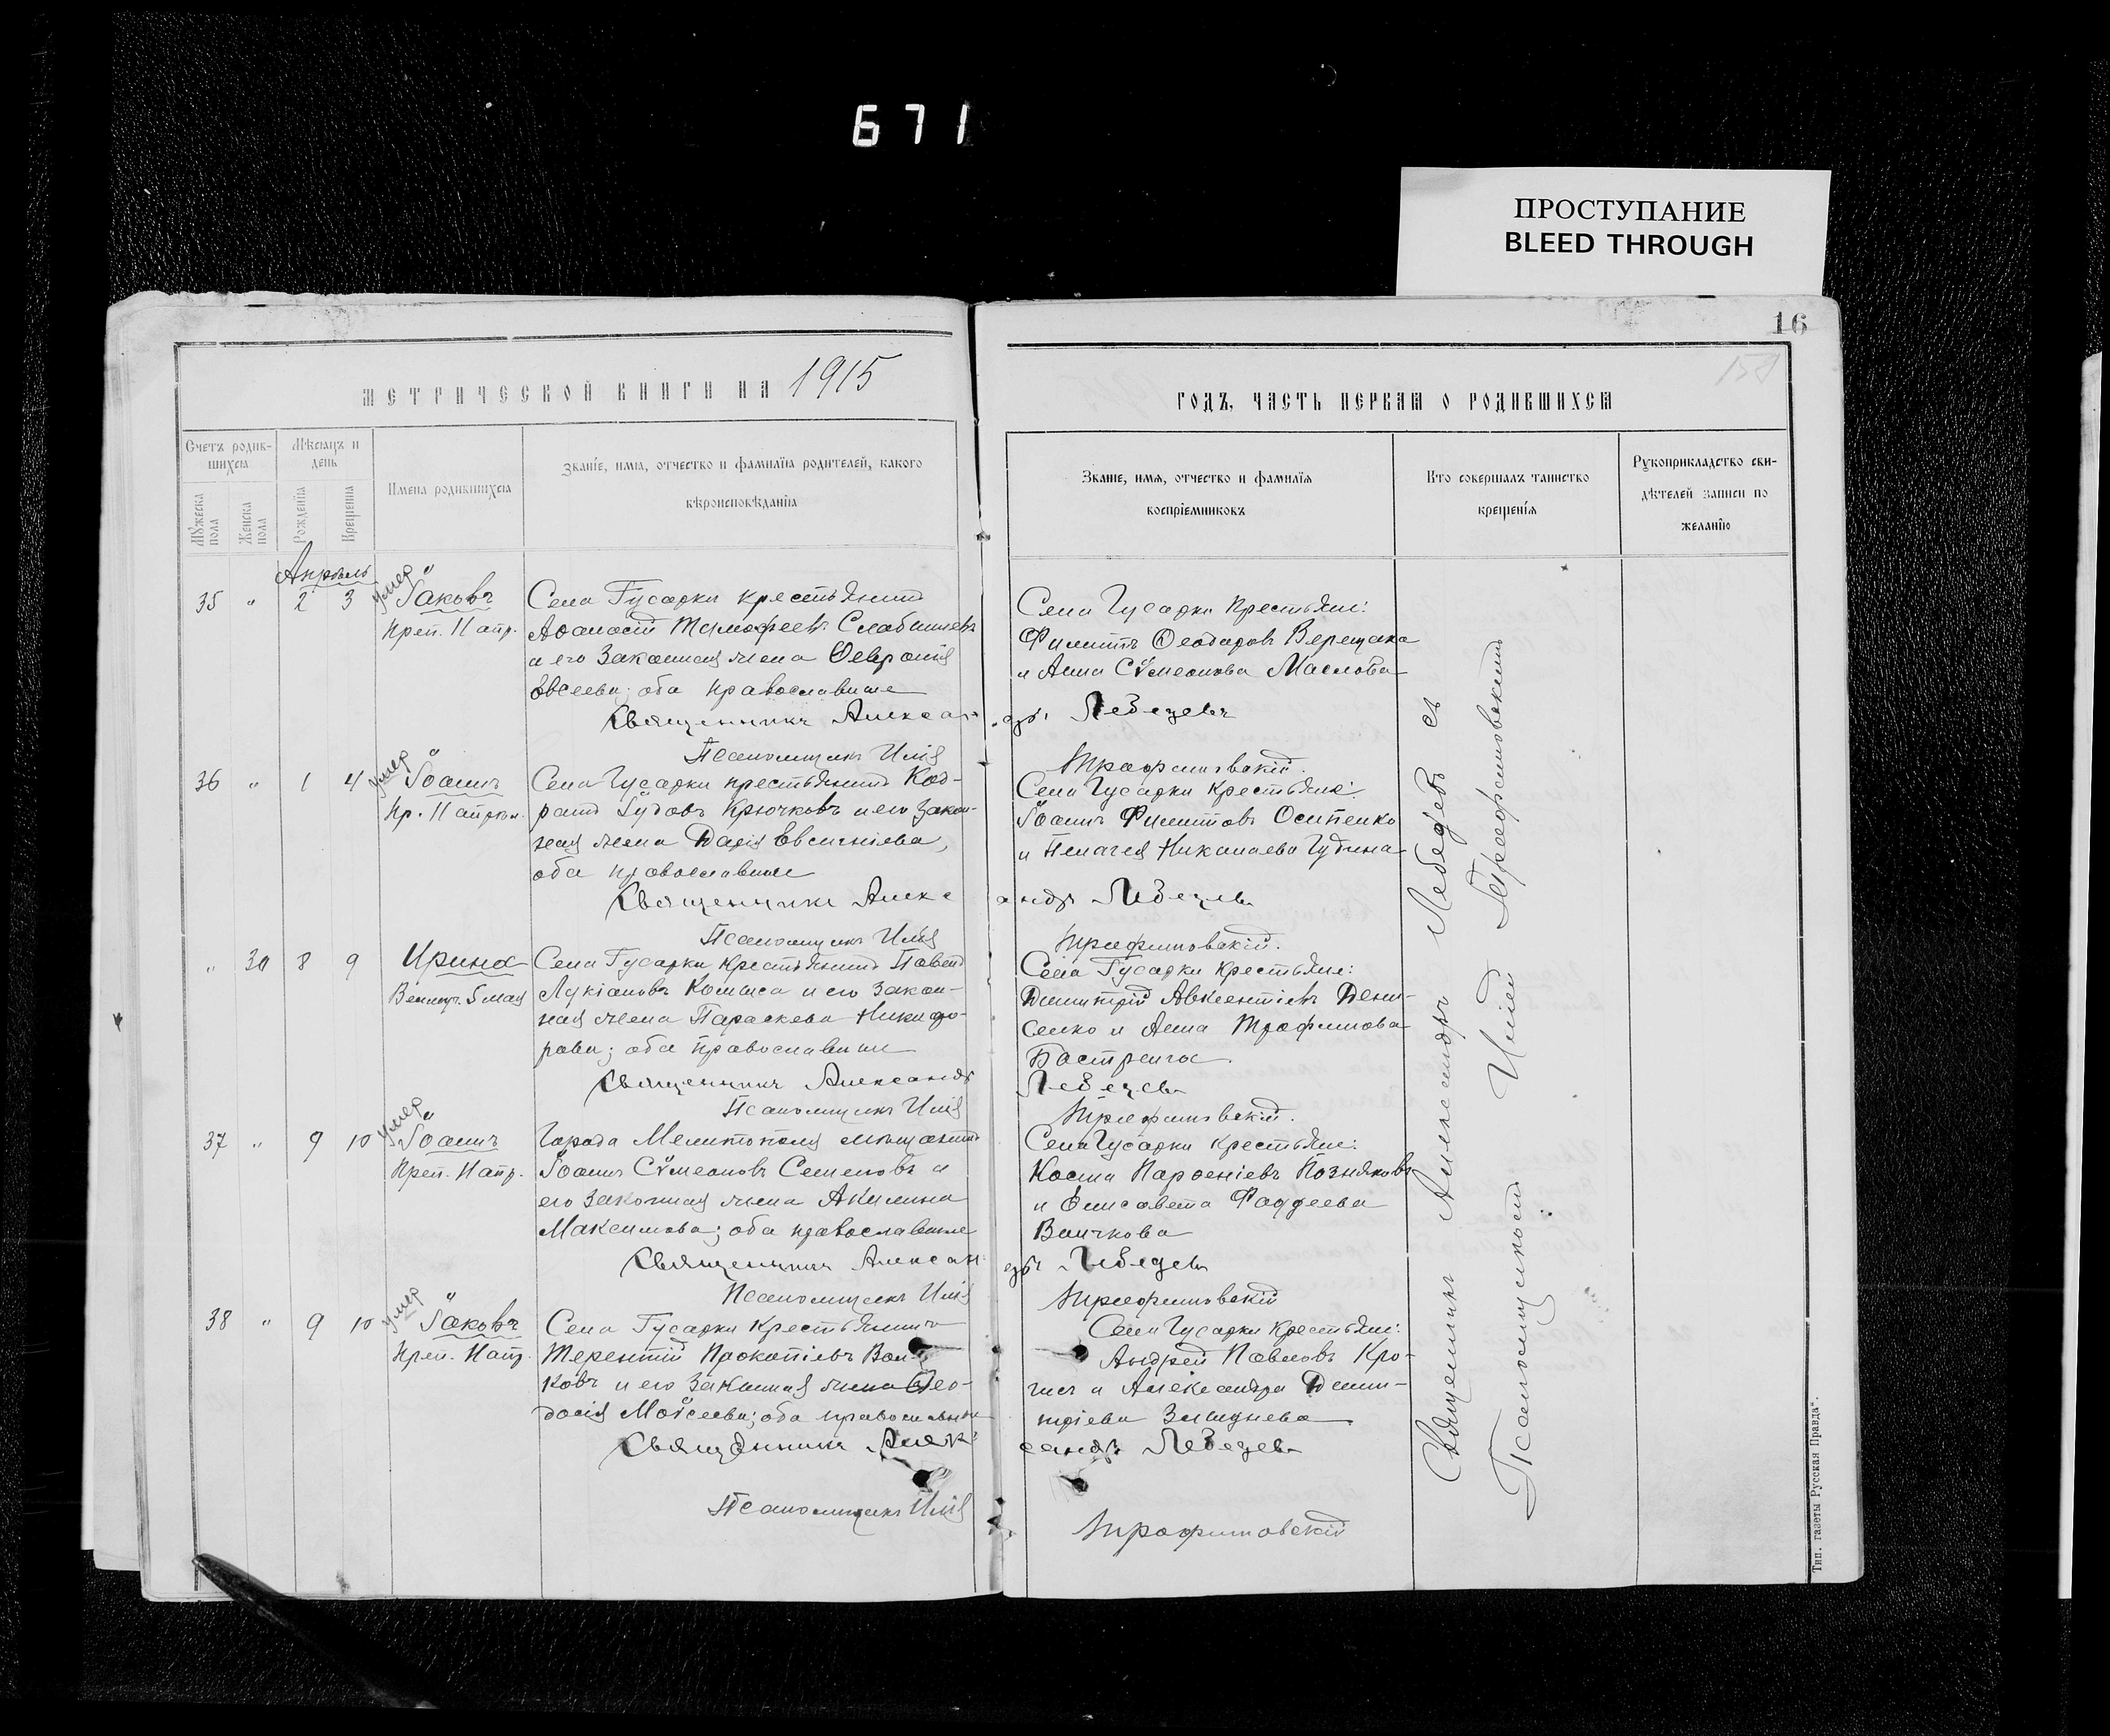 671
ПРОСТУПАНИЕ
BLEED THROUGH
16
МЕТРИЧЕСКОЙ КНИГИ НА 1915
ГОДЪ, ЧАСТЬ ПЕРВАЯ О РОДИВШИХСЯ
Счетъ родив-
шихся
Мѣсяцъ и
день
Имена родившихся
Званіе, имя, отчество и фамилія родителей, какого
вѣроисповѣданія
Мужеска пола
Женска пола
Рожденія
Крещенія
Званіе, имя, отчество и фамилія
воспріемниковъ
Кто совершалъ таинство
крещенія
Рукоприкладство сви-
дѣтелей записи по
желанію
Апрѣль
35 " 2 3 умер Іаковъ
Преп. Патр.
Села Гусарки крестьянинъ
Аѳанасій Тимофеевъ
и его законная жена Февронія
Евсеева; оба православные
Священникъ Александръ Лебедевъ
Псаломщикъ Илія Трофимовскій.
Села Гусарки крестьяне:
Филиппъ Ѳеодоровъ Верещака
и Анна Сѵмеонова Маслова
36 " 1 4 умер Іоаннъ
Пр.
Села Гусарки крестьянинъ Код-
ратъ Іудовъ Крючковъ и его закон-
ная жена Дарія Евсигніева,
оба православные
Священникъ Александръ Лебедевъ
Псаломщикъ Илія Трофимовскій.
Села Гусарки крестьяне:
Іоаннъ Филипповъ Осипенко
и Пелагея Николаева Гудина
" 30 8 9 Ирина
Великом. 5 мая
Села Гусарки крестьянинъ Павелъ
Лукіановъ и его закон-
ная жена Параскева Никифо-
рова; оба православные
Священникъ Александръ
Лебедевъ
Псаломщикъ Илія Трофимовскій.
Села Гусарки крестьяне:
Димитрій Авксентіевъ Дени-
сенко и Анна Трофимова
37 " 9 10 умер Іоаннъ
Преп. Патр.
Города Мелитополя мѣщанинъ
Іоаннъ Сѵмеоновъ Семеновъ и
его законная жена Акилина
Максимова; оба православные
Священникъ Александръ Лебедевъ
Псаломщикъ Илія Трофимовскій
Села Гусарки крестьяне:
Косма Парѳеніевъ Позняковъ
и Елисавета Фаддеева
Волчкова
38 " 9 10 умер Іаковъ
Преп. Патр.
Села Гусарки крестьянинъ
Терентій Прокопіевъ Волч-
ковъ и его законная жена Ѳео-
досія Моѵсеева; оба православные
Священникъ Александръ Лебедевъ
Псаломщикъ Илія
Трофимовскій
Села Гусарки крестьяне:
Андрей Павловъ
и Александра Дими-
тріева
Священникъ Александръ Лебедевъ съ
Псаломщикомъ Иліей Трофимовскимъ
Тип. газеты Русская Правда".